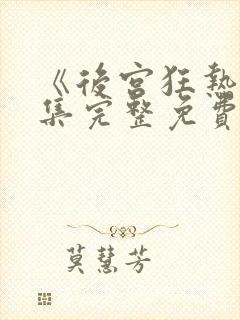 《後宮狂熱
集完整免費
莫慧芳